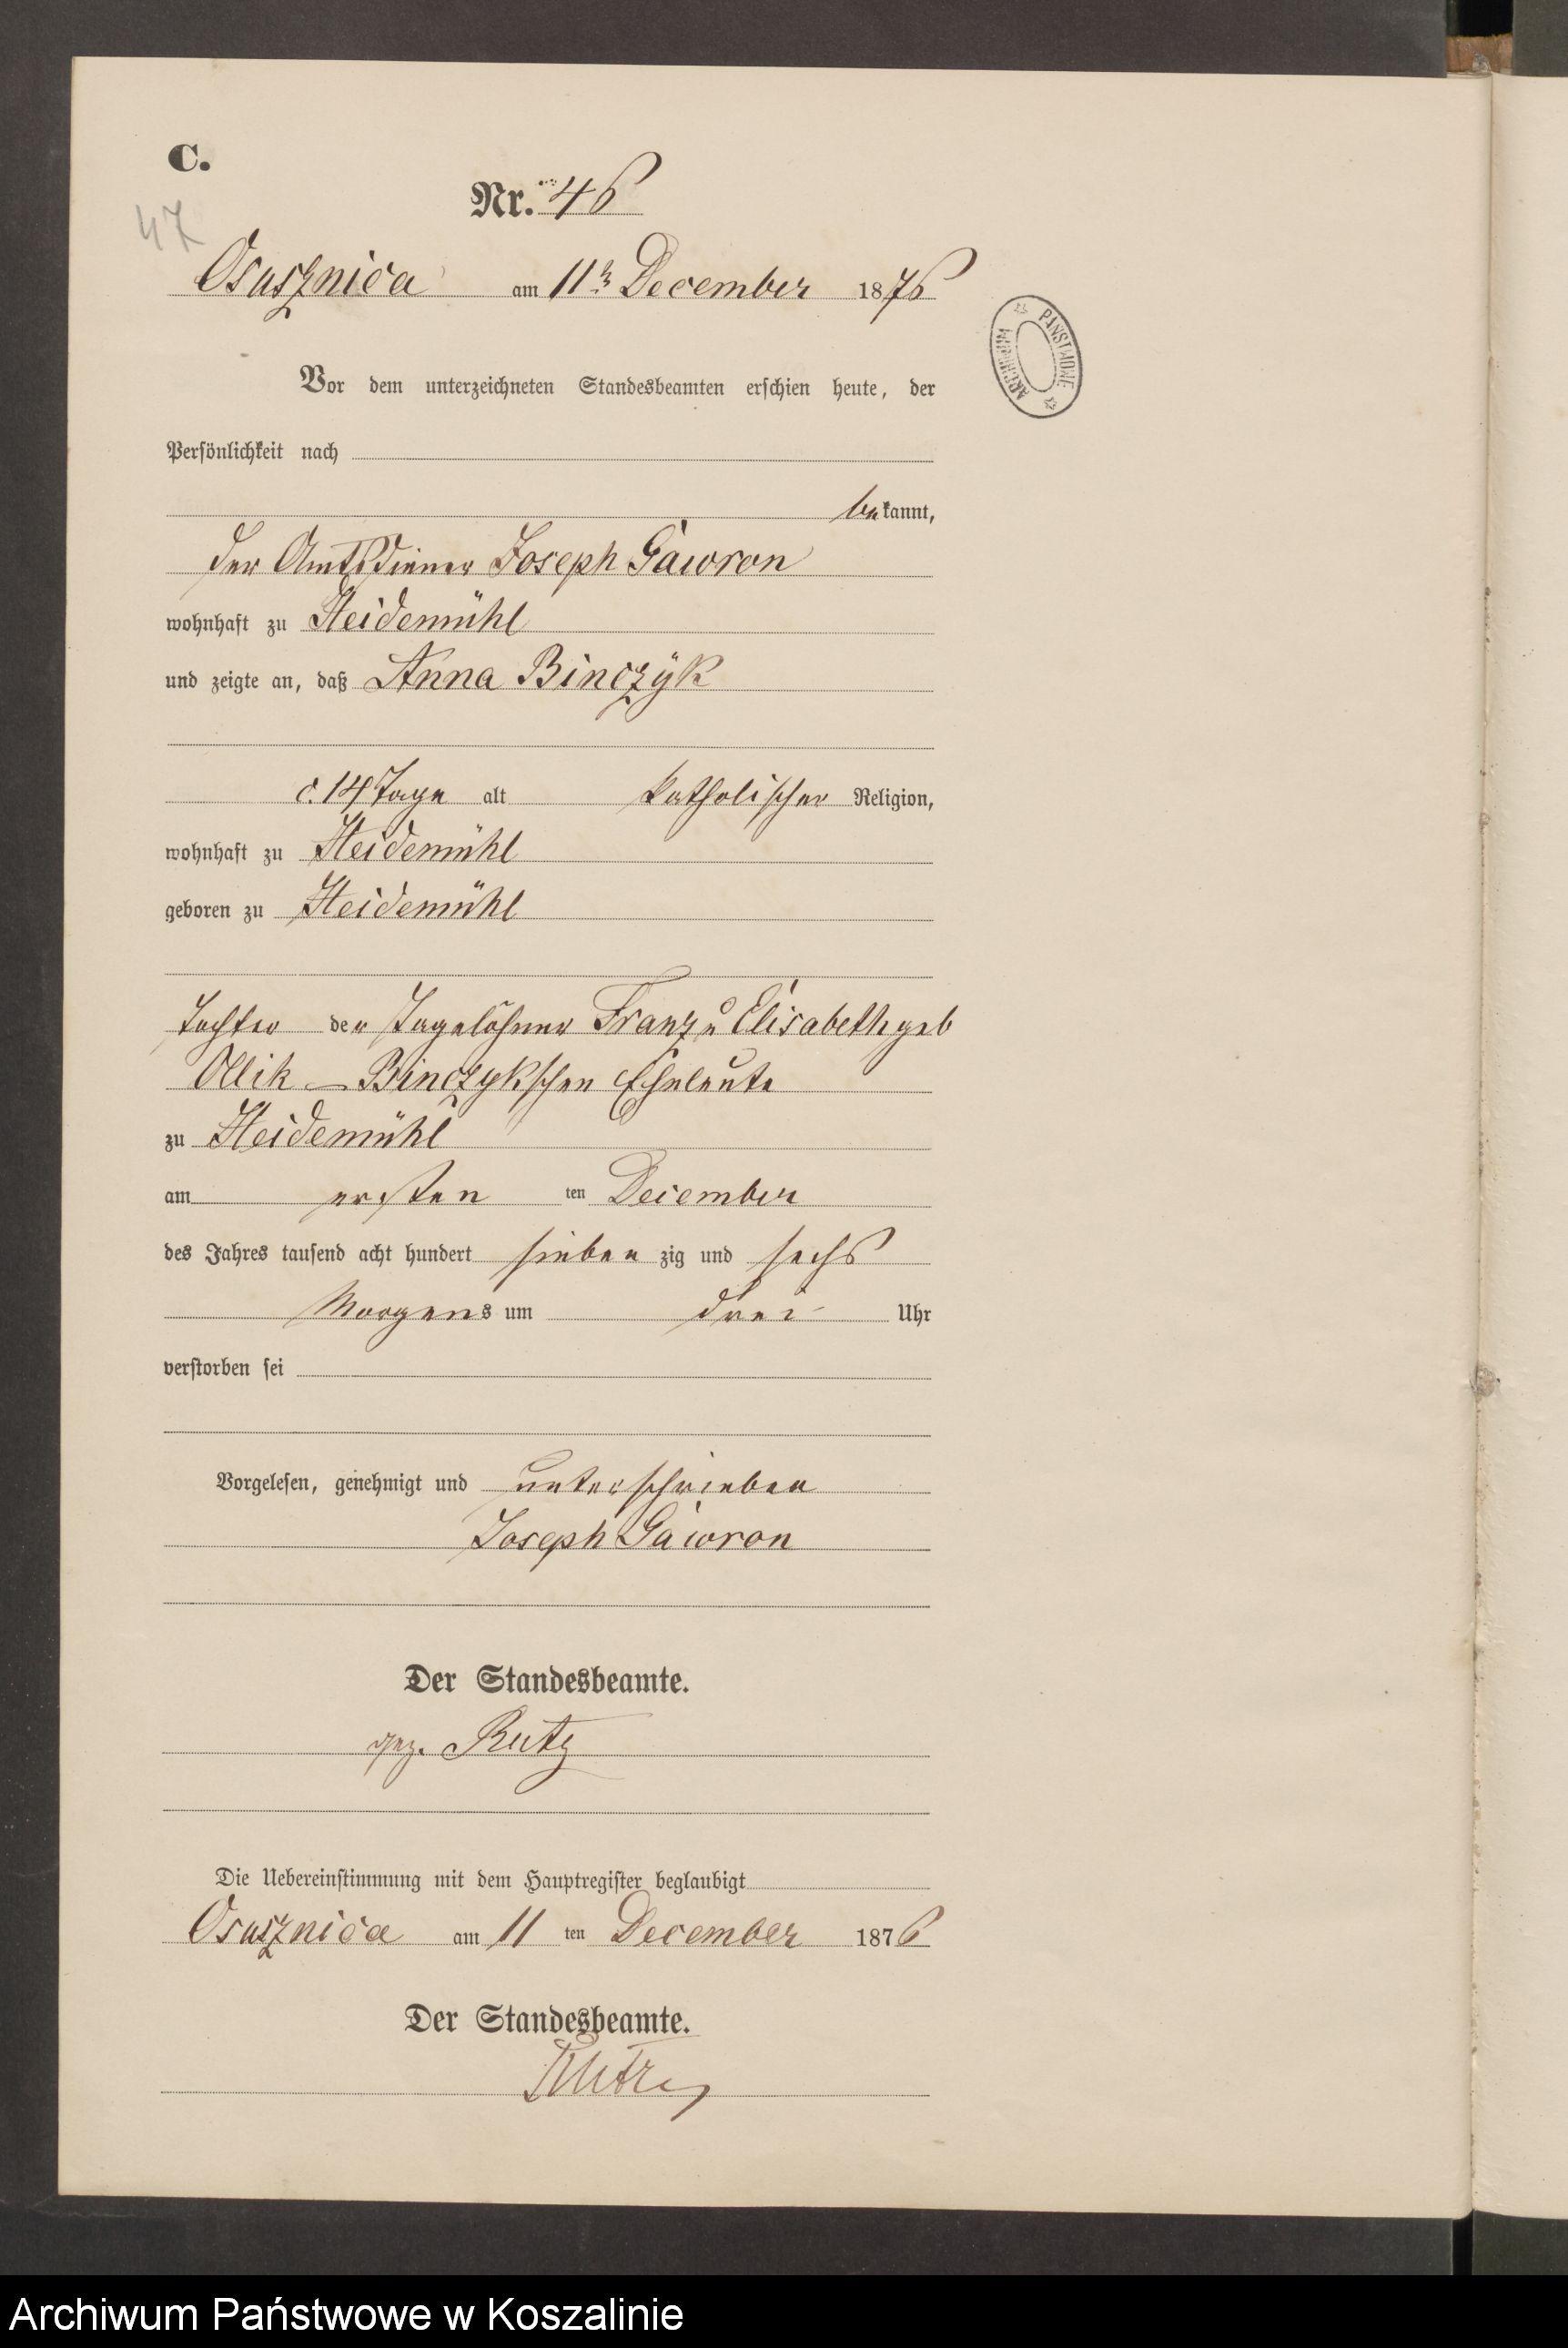 C.
Nr. 46
47
Osusznica am 11ten December 1876
PAŃSTWOWE ARCHIWUM
Vor dem unterzeichneten Standesbeamten erschien heute, der
Persönlichkeit nach
bekannt,
der Amtsdiener Joseph Gawron
wohnhaft zu Heidemühl
und zeigte an, daß Anna Binczÿk
c. 14 Tage alt katholischer Religion,
wohnhaft zu Heidemühl
geboren zu Heidemühl
Tochter der Tagelöhner Franz u Elisabeth geb
Ollik - Binczykschen Eheleute
zu Heidemühl
am ersten ten December
des Jahres tausend acht hundert sieben zig und sechs
Morgens um drei Uhr
verstorben sei
Vorgelesen, genehmigt und unterschrieben
Joseph Gawron
Der Standesbeamte.
gez. Rutz
Die Uebereinstimmung mit dem Hauptregister beglaubigt
Osusznica am 11 ten December 1876
Der Standesbeamte.
Rutz
Archiwum Państwowe w Koszalinie